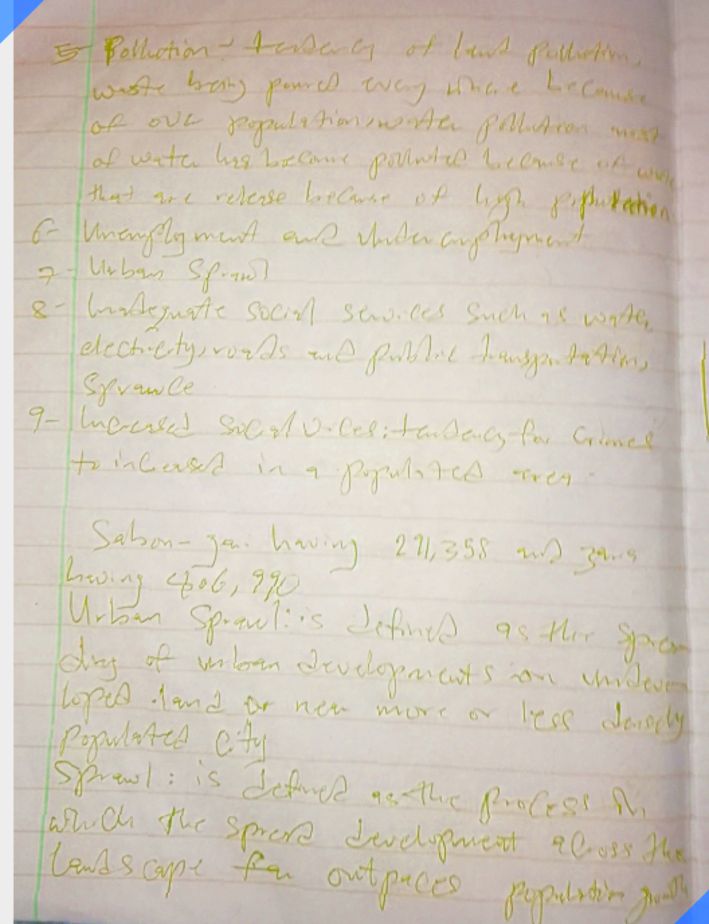 5- Pollution- tendency of land pollution,
waste being poured every where because
of our population, water pollution most
of water has become polluted because of
that are release because of high population
6- Unemployment and Under employment
7- Urban Sprawl
8- Inadequate social services such as water,
electricity, roads and public transportation,
9- Increased social vices: tendency for crimes
to increased in a populated area
Sabon-gari having 291,358 and zaria
having 406,990
Urban Sprawl: is defined as the sprea
ding of urban developments on undeve
loped land or near more or less densely
populated city
Sprawl: is defined as the process in
which the spread development across the
landscape far outpaces population growth